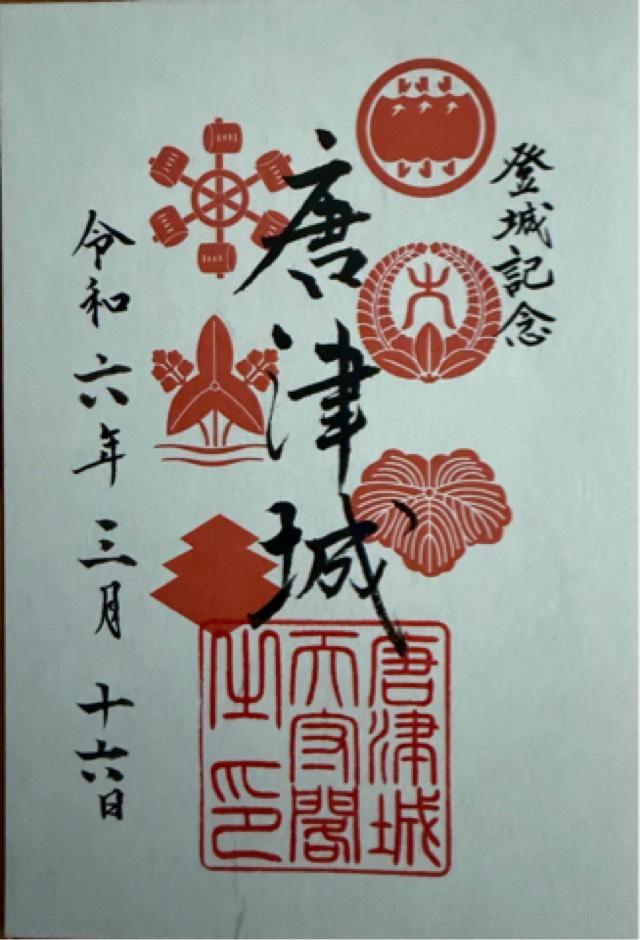 登城記念
大
唐津城
令和六年三月十六日
唐津城
天守閣
之印